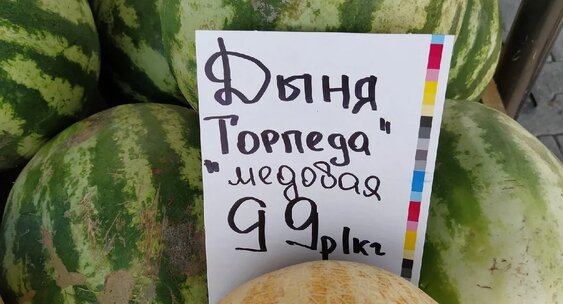 Дыня
Торпеда"
"медовая
99р/кг